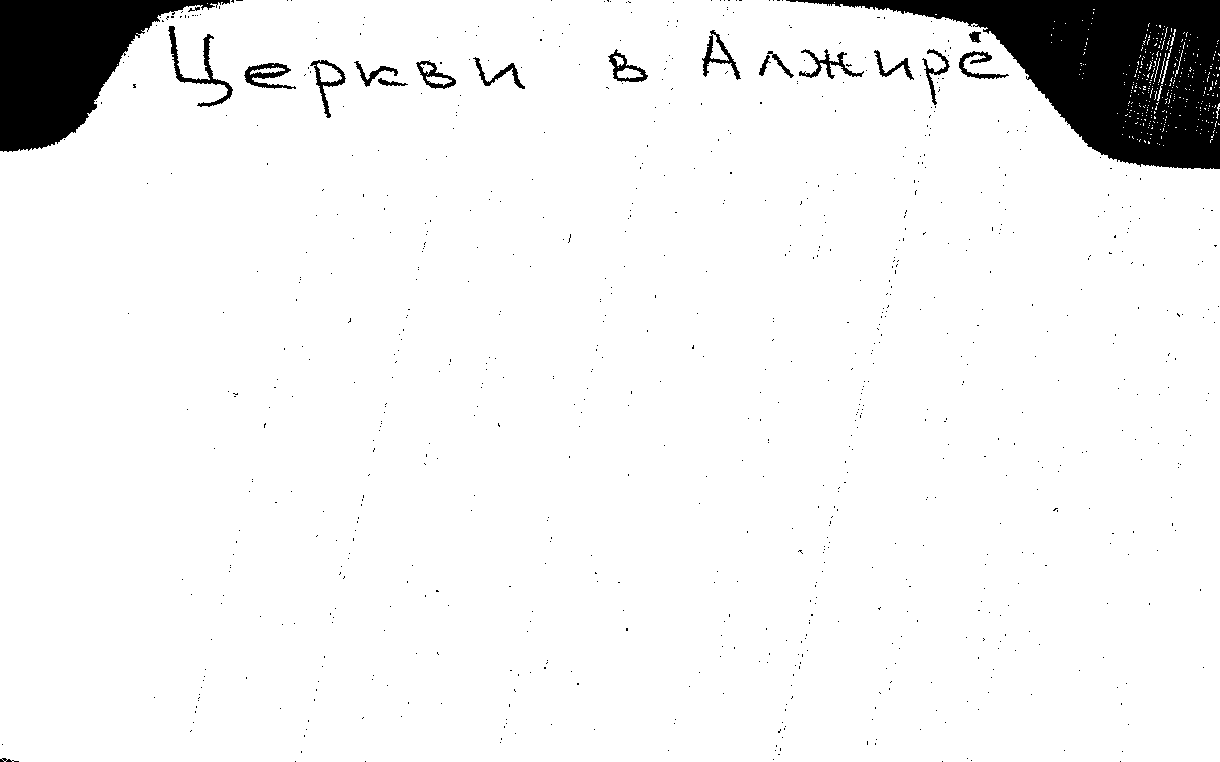 Церкви в Алжире